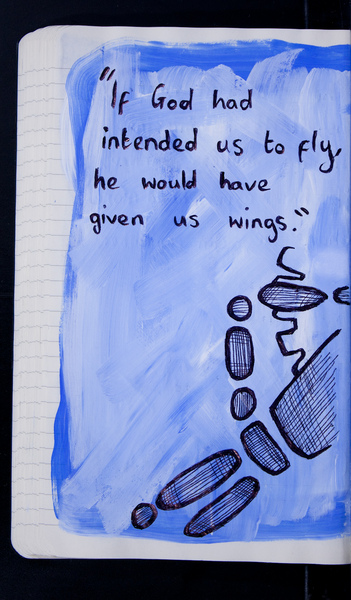 "If God had
intended us to fly,
he would have
given us wings."